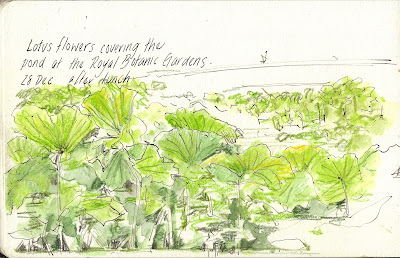 Lotus flowers covering the
pond at the Royal Botanic Gardens.
28 Dec after lunch